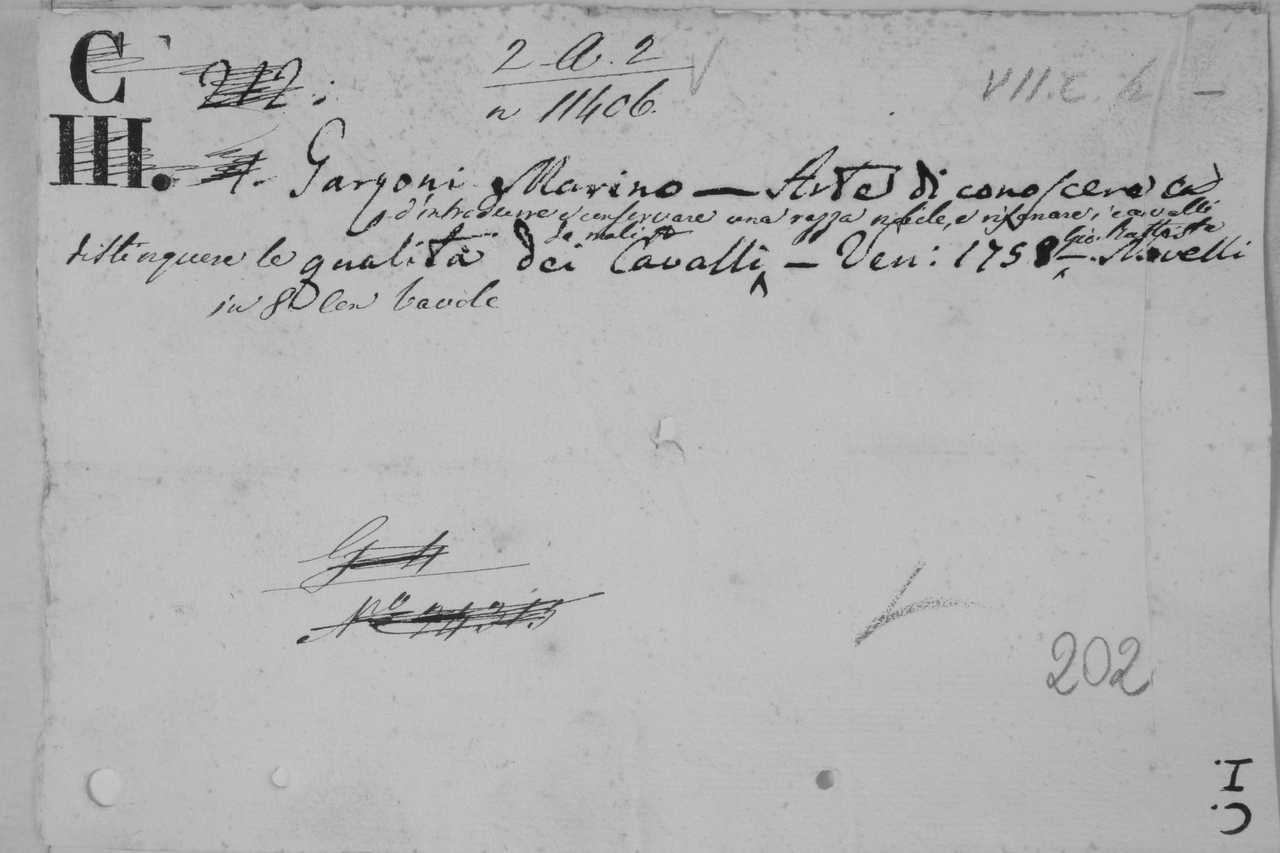 C 212:
2-A.2
n 11406.
VII.C. b —
III. 4. Garzoni Marino — Arte di conoscere e
d'introdurre e conservare una razza nobile, e risanare i cavalli
da mali
distinguere le qualità dei Cavalli — Ven: 1758 — Novelli
Gio: Battista
in 8° con tavole
G
N°
202
C. I.